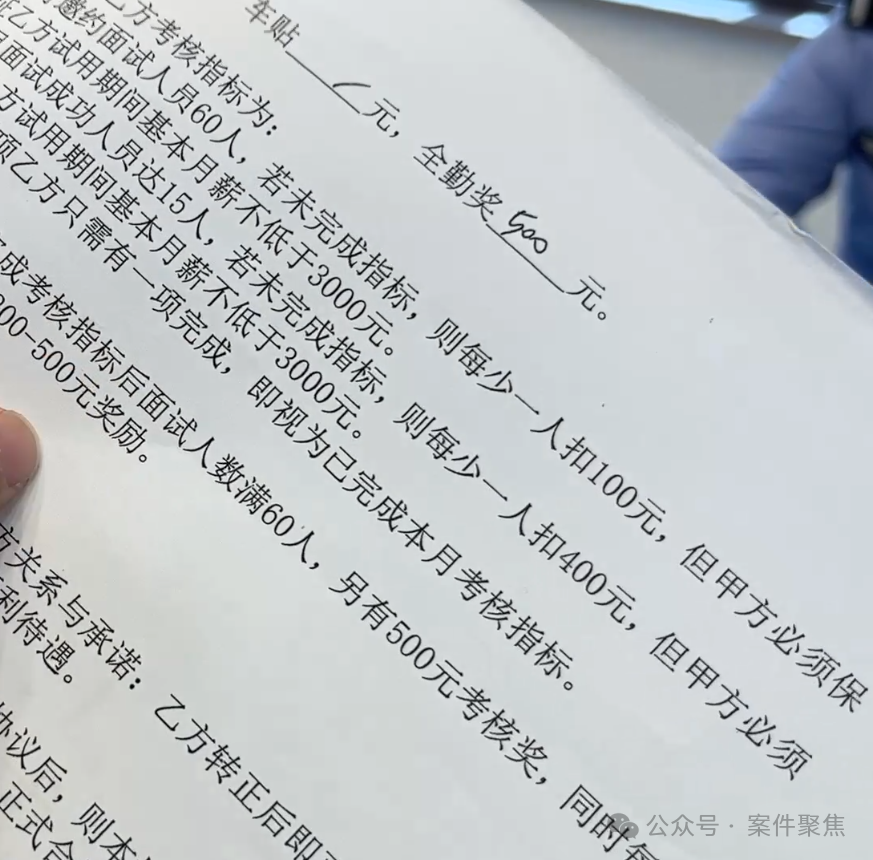 车贴 / 元，全勤奖 500 元。
乙方考核指标为：
邀约面试人员60人，若未完成指标，则每少一人扣100元，但甲方必须保
证乙方试用期间基本月薪不低于3000元。
面试成功人员达15人，若未完成指标，则每少一人扣400元，但甲方必须
方试用期间基本月薪不低于3000元。
项乙方只需有一项完成，即视为已完成本月考核指标。
成考核指标后面试人数满60人，另有500元考核奖，同时每
00-500元奖励。
方关系与承诺：乙方转正后即
利待遇。
协议后，则本
正式合
公众号 · 案件聚焦